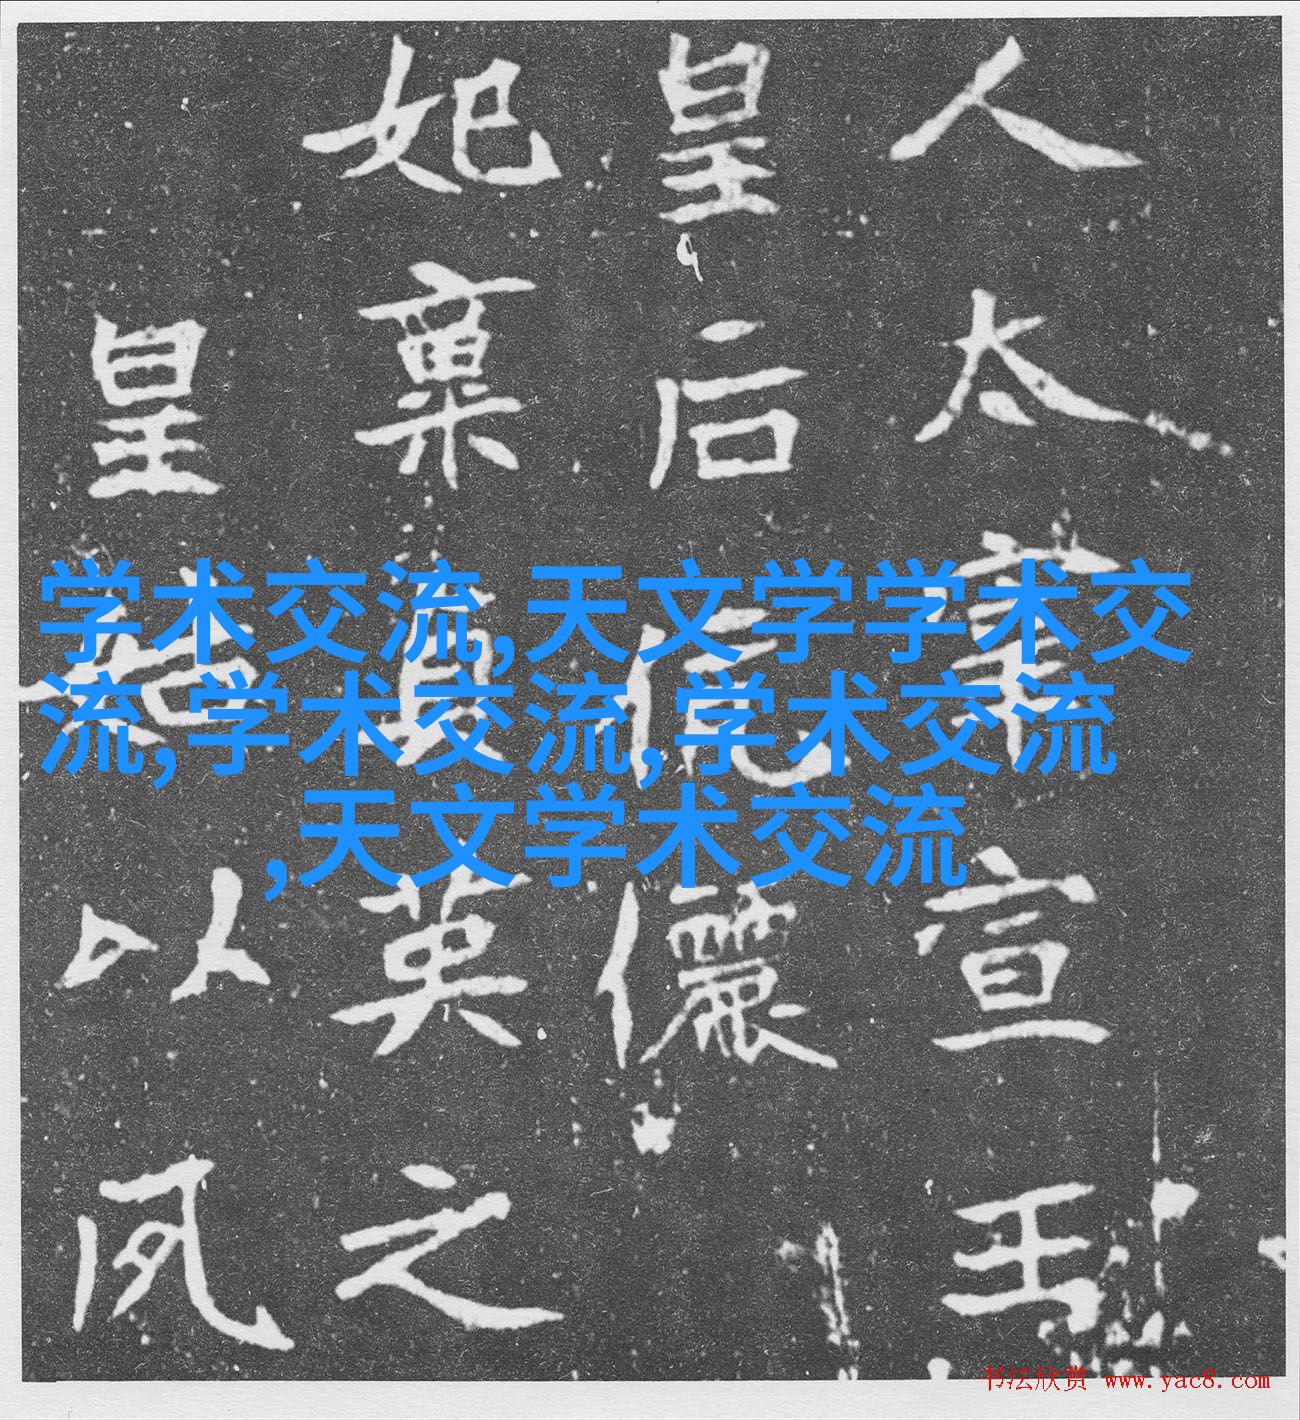 人太宣王
皇后伉儷
妃稟英之
皇以夙
学术交流,天文学学术交
流,学术交流,学术交流
,天文学术交流
书法欣赏 www.yac8.com